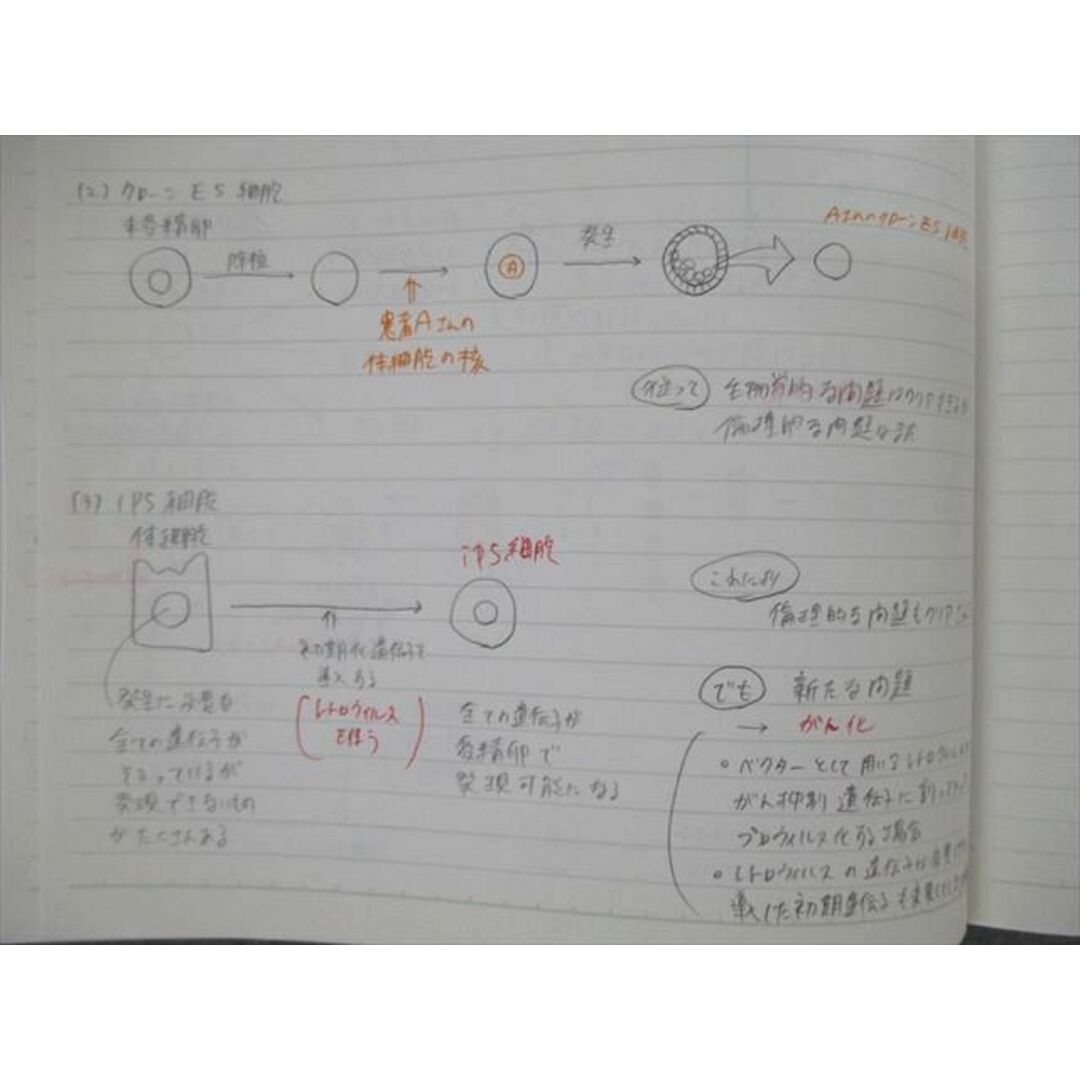 (2) クローン ES 細胞
未受精卵
除核
A
発生
Aさんのクローン ES
患者Aさんの
体細胞の核
従って 生物学的な問題はクリアできるが
倫理的な問題は
(3) iPS 細胞
体細胞
初期化遺伝子を
導入する
(レトロウイルス
を使う)
iPS細胞
これにより
倫理的な問題もクリア
発生に必要な
全ての遺伝子が
そろっているが
発現できないもの
がたくさんある
全ての遺伝子が
受精卵で
発現可能になる
でも 新たな問題
→ がん化
○ ベクターとして用いるレトロウイルス
がん抑制遺伝子に割って
プロウイルス化する場合
○ レトロウイルスの遺伝子は
導入した初期遺伝子も